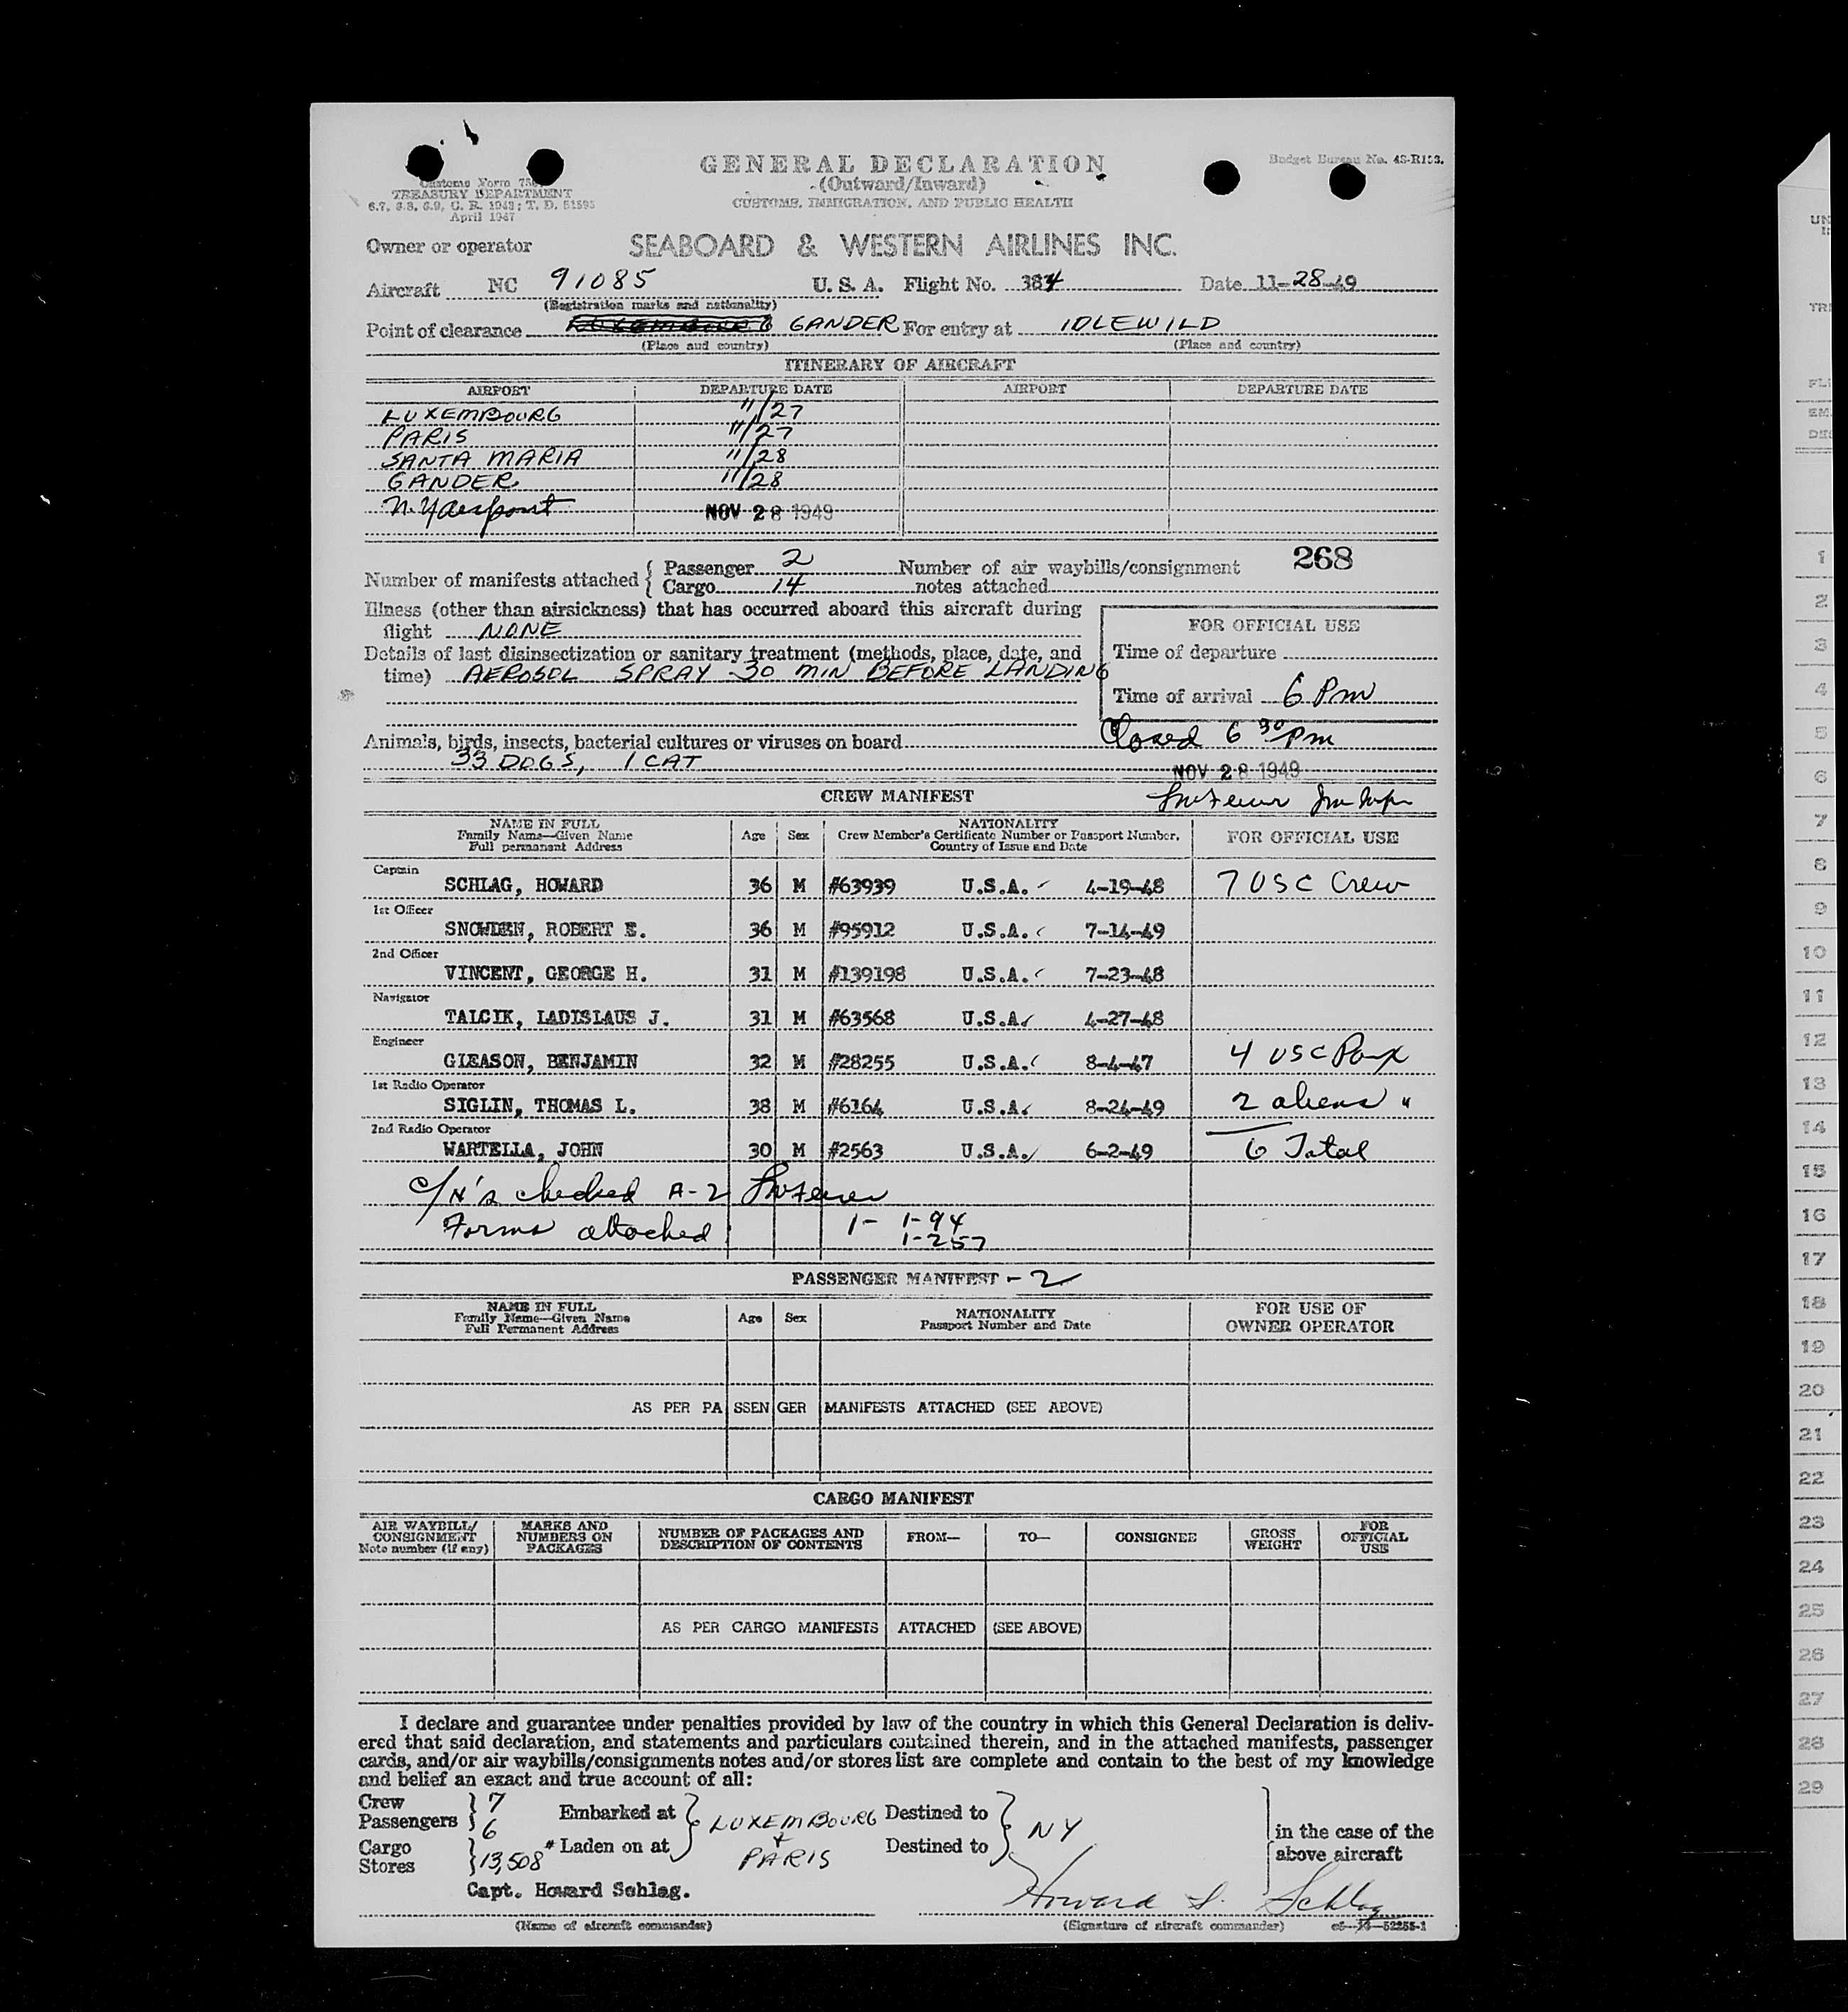 Customs Form 75
TREASURY DEPARTMENT
6.7, 6.8, 6.9, C. R. 1943; T. D. 51595
April 1947
Budget Bureau No. 48-R153.
GENERAL DECLARATION
(Outward/Inward)
CUSTOMS, IMMIGRATION, AND PUBLIC HEALTH
Owner or operator SEABOARD & WESTERN AIRLINES INC.
Aircraft NC 91085 U. S. A. Flight No. 384 Date 11-28-49
(Registration marks and nationality)
Point of clearance GANDER For entry at IDLEWILD
(Place and country) (Place and country)
ITINERARY OF AIRCRAFT
AIRPORT DEPARTURE DATE AIRPORT DEPARTURE DATE
LUXEMBOURG 11/27
PARIS 11/27
SANTA MARIA 11/28
GANDER 11/28
N.Y airport NOV 28 1949
268
Number of manifests attached { Passenger 2 Number of air waybills/consignment
Cargo 14 notes attached
Illness (other than airsickness) that has occurred aboard this aircraft during
flight NONE
Details of last disinsectization or sanitary treatment (methods, place, date, and
time) AEROSOL SPRAY 30 MIN BEFORE LANDING
FOR OFFICIAL USE
Time of departure
Time of arrival 6 Pm
Closed 6 30 pm
Animals, birds, insects, bacterial cultures or viruses on board
33 DOGS, 1 CAT
NOV 28 1949
CREW MANIFEST
NAME IN FULL
Family Name—Given Name
Full permanant Address
Age Sex
NATIONALITY
Crew Member's Certificate Number or Passport Number,
Country of Issue and Date
FOR OFFICIAL USE
Captain
SCHLAG, HOWARD 36 M #63939 U.S.A. 4-19-48 7 USC Crew
1st Officer
SNOWDEN, ROBERT E. 36 M #95912 U.S.A. 7-14-49
2nd Officer
VINCENT, GEORGE H. 31 M #139198 U.S.A. 7-23-48
Navigator
TALCIK, LADISLAUS J. 31 M #63568 U.S.A. 4-27-48
Engineer
GLEASON, BENJAMIN 32 M #28255 U.S.A. 8-4-47 4 USC Pax
1st Radio Operator
SIGLIN, THOMAS L. 38 M #6164 U.S.A. 8-24-49 2 aliens "
2nd Radio Operator
WARTELLA, JOHN 30 M #2563 U.S.A. 6-2-49 6 Total
c/H's checked A-2
Forms attached 1- 1-94
1-257
PASSENGER MANIFEST - 2
NAME IN FULL
Family Name—Given Name
Full Permanent Address
Age Sex
NATIONALITY
Passport Number and Date
FOR USE OF
OWNER OPERATOR
AS PER PASSENGER MANIFESTS ATTACHED (SEE ABOVE)
CARGO MANIFEST
AIR WAYBILL/
CONSIGNMENT
Note number (if any)
MARKS AND
NUMBERS ON
PACKAGES
NUMBER OF PACKAGES AND
DESCRIPTION OF CONTENTS
FROM—
TO—
CONSIGNEE
GROSS
WEIGHT
FOR
OFFICIAL
USE
AS PER CARGO MANIFESTS ATTACHED (SEE ABOVE)
I declare and guarantee under penalties provided by law of the country in which this General Declaration is deliv-
ered that said declaration, and statements and particulars contained therein, and in the attached manifests, passenger
cards, and/or air waybills/consignments notes and/or stores list are complete and contain to the best of my knowledge
and belief an exact and true account of all:
Crew 7
Passengers 6
Embarked at LUXEMBOURG Destined to NY
Cargo
Stores 13,508 # Laden on at + PARIS Destined to
in the case of the
above aircraft
Capt. Howard Schlag.
Howard S. Schlag
(Name of aircraft commander) (Signature of aircraft commander) c6—16—52255-1
UN
TR
FLI
EM
DES
1
2
3
4
5
6
7
8
9
10
11
12
13
14
15
16
17
18
19
20
21
22
23
24
25
26
27
28
29